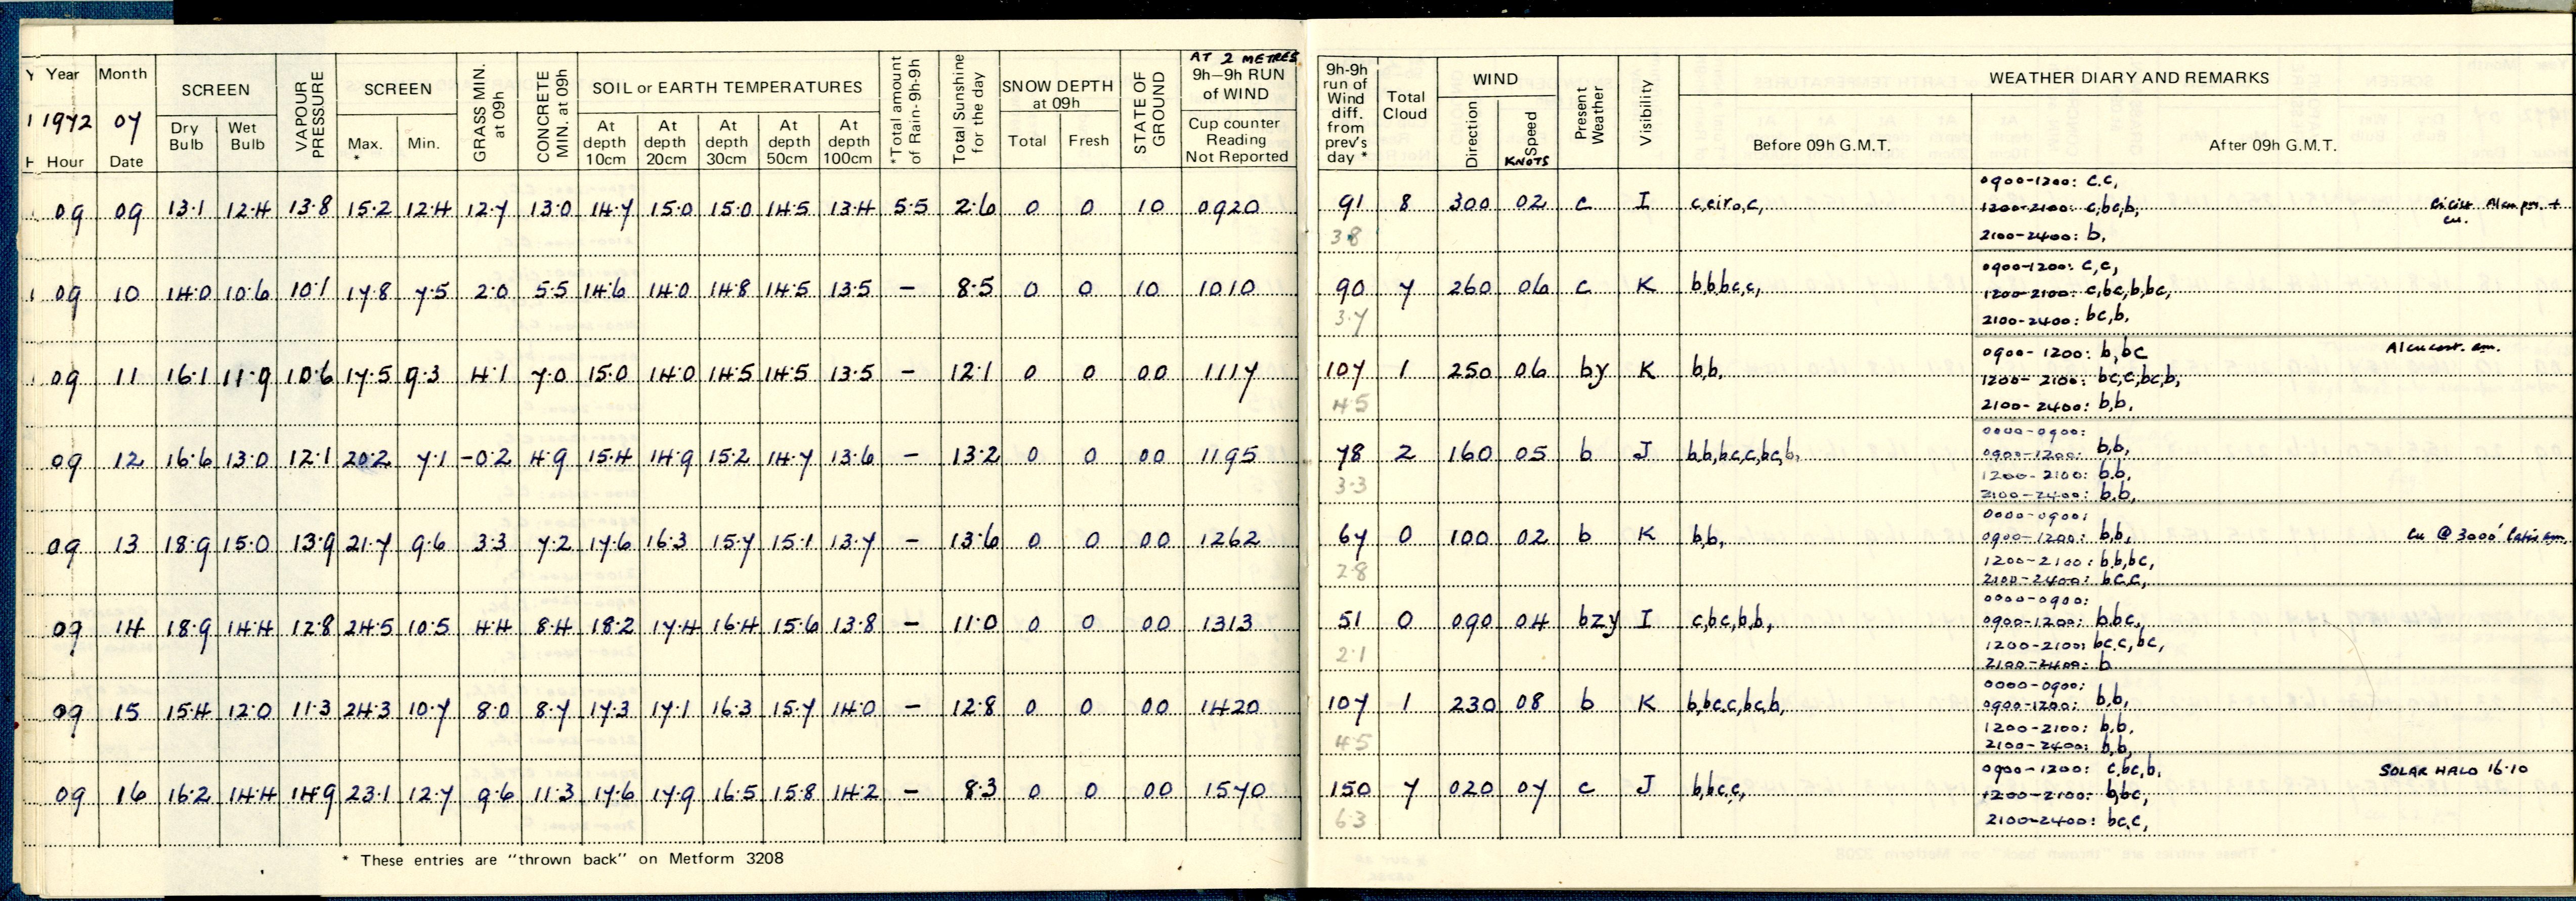 AT 2 METRES
Year Month SCREEN VAPOUR PRESSURE SCREEN GRASS MIN. at 09h CONCRETE MIN. at 09h SOIL or EARTH TEMPERATURES *Total amount of Rain-9h-9h Total Sunshine for the day SNOW DEPTH at 09h STATE OF GROUND 9h–9h RUN of WIND 9h-9h run of Wind diff. from prev's day * Total Cloud WIND Present Weather Visibility WEATHER DIARY AND REMARKS
1972 07 Dry Bulb Wet Bulb Max. * Min. At depth 10cm At depth 20cm At depth 30cm At depth 50cm At depth 100cm Total Fresh Cup counter Reading Not Reported Direction Speed KNOTS Before 09h G.M.T. After 09h G.M.T.
Hour Date
0900-1200: c.c,
09 09 13.1 12.4 13.8 15.2 12.4 12.7 13.0 14.7 15.0 15.0 14.5 13.4 5.5 2.6 0 0 10 0920 91 8 300 02 c I 1200-2100: c,bc,b,
cu.
38 2100-2400: b,
0900-1200: c,c,
09 10 14.0 10.6 10.1 17.8 7.5 2.0 5.5 14.6 14.0 14.8 14.5 13.5 – 8.5 0 0 10 1010 90 7 260 06 c K b,b,bc,c, 1200-2100: c,bc,b,bc,
3.7 2100-2400: bc,b,
0900-1200: b,bc
09 11 16.1 11.9 10.6 17.5 9.3 4.1 7.0 15.0 14.0 14.5 14.5 13.5 – 12.1 0 0 00 1117 107 1 250 06 by K b,b, 1200-2100: bc,c,bc,b,
4.5 2100-2400: b,b,
0000-0900:
09 12 16.6 13.0 12.1 20.2 7.1 -0.2 4.9 15.4 14.9 15.2 14.7 13.6 – 13.2 0 0 00 1195 78 2 160 05 b J b,b,bc,c,bc,b, 0900-1200: b,b,
1200-2100: b,b,
3.3 2100-2400: b,b,
0000-0900:
09 13 18.9 15.0 13.9 21.7 9.6 3.3 7.2 17.6 16.3 15.7 15.1 13.7 – 13.6 0 0 00 1262 67 0 100 02 b K b,b, 0900-1200: b,b, Cu @ 3000'
1200-2100: b,b,bc,
2.8 2100-2400: bc,c,
0000-0900:
09 14 18.9 14.4 12.8 24.5 10.5 4.4 8.4 18.2 17.4 16.4 15.6 13.8 – 11.0 0 0 00 1313 51 0 090 04 bzy I c,bc,b,b, 0900-1200: b,bc,
1200-2100: bc,c,bc,
2.1 2100-2400: b
0000-0900:
09 15 15.4 12.0 11.3 24.3 10.7 8.0 8.7 17.3 17.1 16.3 15.7 14.0 – 12.8 0 0 00 1420 107 1 230 08 b K b,bc,c,bc,b, 0900-1200: b,b,
1200-2100: b,b,
4.5 2100-2400: b,b,
0900-1200: c,bc,b, SOLAR HALO 16.10
09 16 16.2 14.4 14.9 23.1 12.7 9.6 11.3 17.6 17.9 16.5 15.8 14.2 – 8.3 0 0 00 1570 150 7 020 07 c J b,bc,c, 1200-2100: b,bc,
6.3 2100-2400: bc,c,
* These entries are "thrown back" on Metform 3208